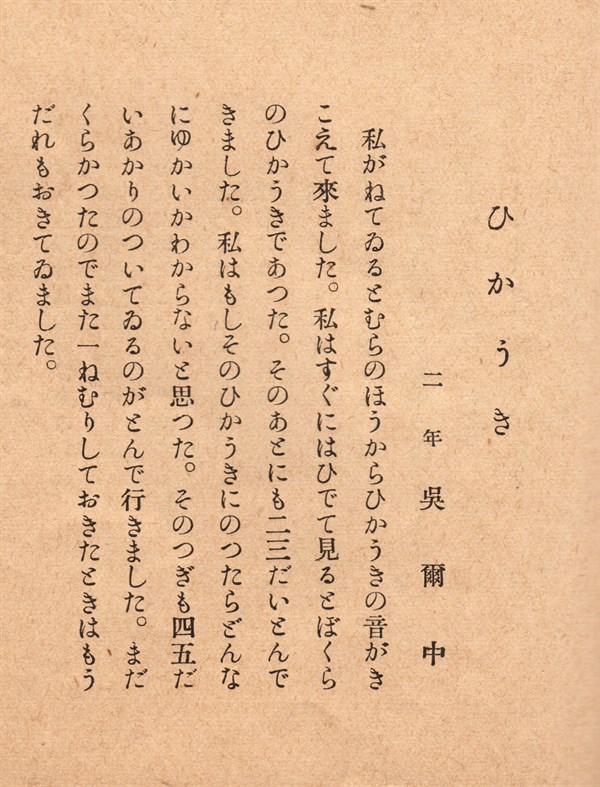 ひかうき
二年 吳爾中
私がねてゐるとむらのほうからひかうきの音がき
こえて來ました。私はすぐにはひでて見るとぼくら
のひかうきであつた。そのあとにも二三だいとんで
きました。私はもしそのひかうきにのつたらどんな
にゆかいかわからないと思つた。そのつぎも四五だ
いあかりのついてゐるのがとんで行きました。まだ
くらかつたのでまた一ねむりしておきたときはもう
だれもおきてゐました。